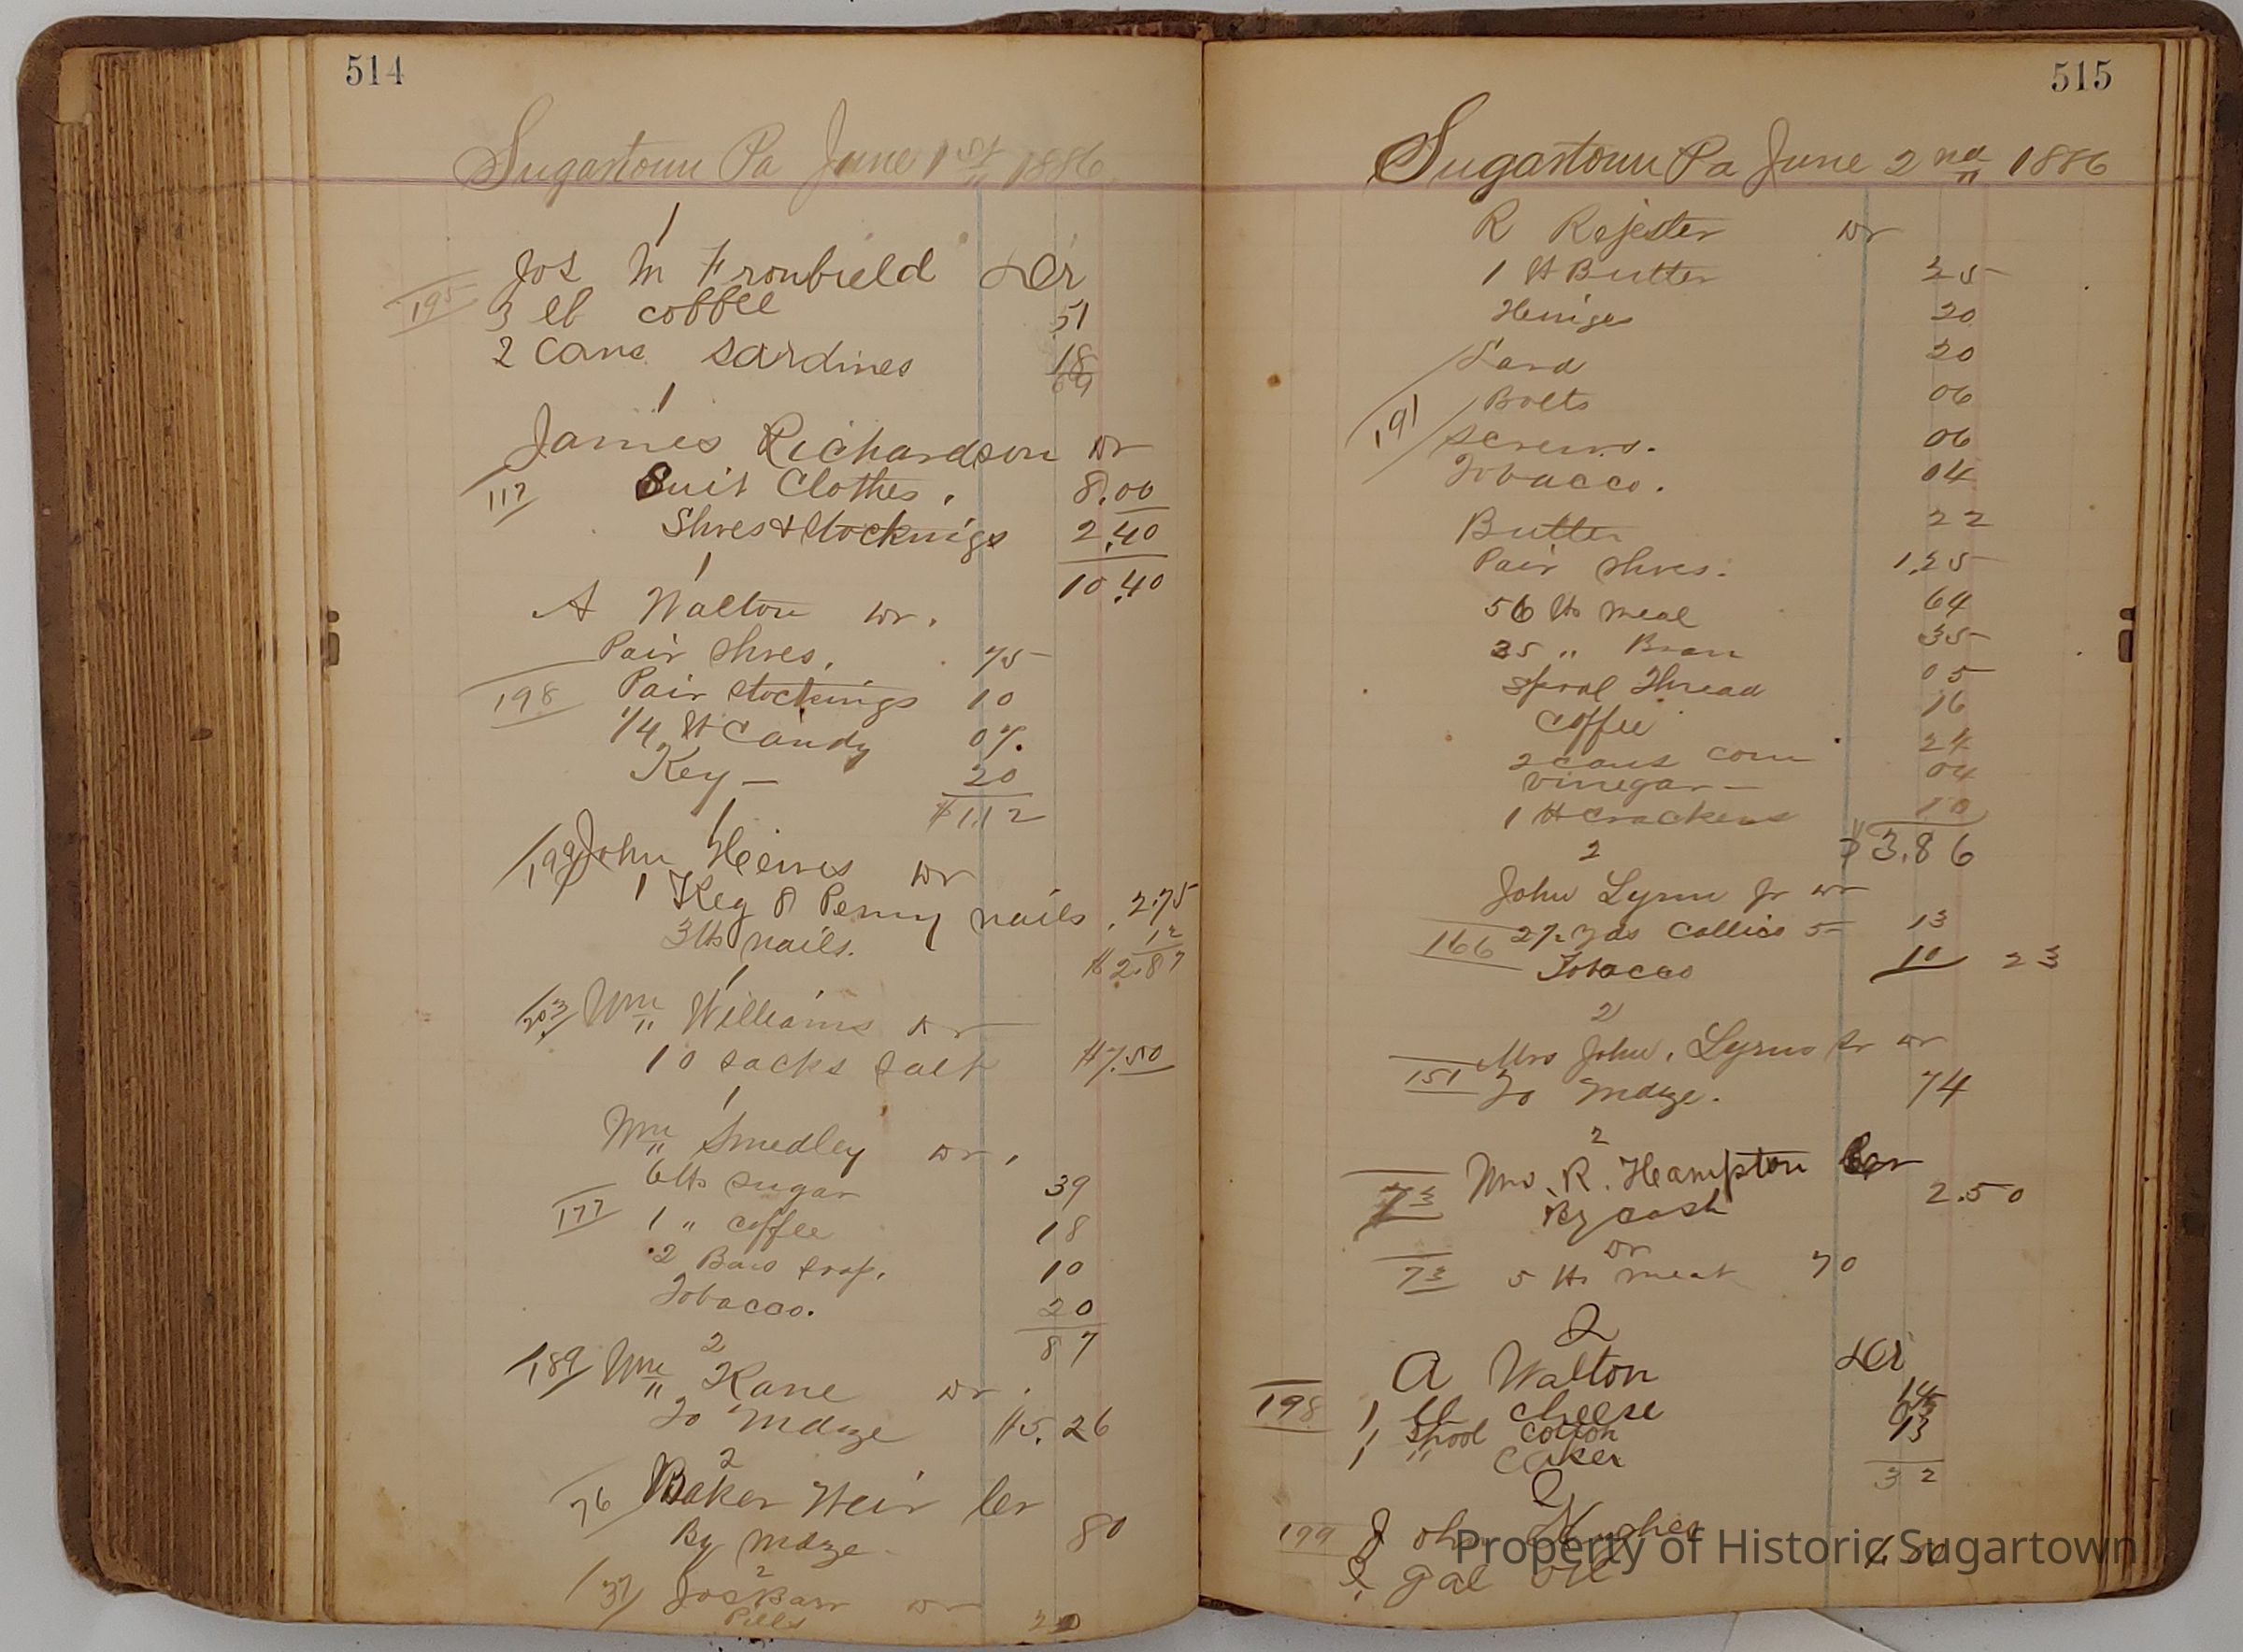 514
Sugartown Pa June 1st 1886
1
Jos M Fronbield Dr
195 3 lb cobbee 51
2 Cans sardines 18
69
1
James Richardson Dr
117 Suit Clothes. 8.00
Shoes & Stockings 2.40
10.40
1
A Walton Dr.
Pair Shoes. 75
198 Pair stockings 10
1/4 lb Candy 07.
Key — 20
$1.12
1
199 John Dr
1 Keg 8 Penny nails. 2.75
3 lbs nails. 12
$2.87
1
203 Wm Williams Dr
10 sacks salt $7.50
1
Wm Smedley Dr.
6 lbs sugar 39
177 1 " coffee 18
2 Bars soap. 10
Tobacco. 20
87
2
189 Wm Kane Dr.
To Mdze $5.26
2
76 Baker Weir Cr
By Mdze 80
2
37 Jos Barr Dr
Pills 20
515
Sugartown Pa June 2nd 1886
R Rejester Dr
1 lb Butter 25
20
Lard 20
Bolts 06
191 Screws. 06
Tobacco. 04
Butter 22
Pair Shoes. 1,25
56 lbs meal 64
35 " Bran 35
Spool Thread 05
Coffee 16
2 cans corn 24
vinegar — 04
1 lb Crackers 10
$3.86
2
John Lynn Jr Dr
166 2 1/2 yds Callico 5 13
Tobacco 10 23
2
Mrs John. Lynn Sr Dr
151 To Mdze. 74
2
73 Mrs. R. Hampton Cr
By cash 2.50
Dr
73 5 lbs meat 70
2
A Walton Dr
198 1 lb cheese
1 Spool Cotton
1 " 13
32
2
199 John Hughes
gal oil
Property of Historic Sugartown